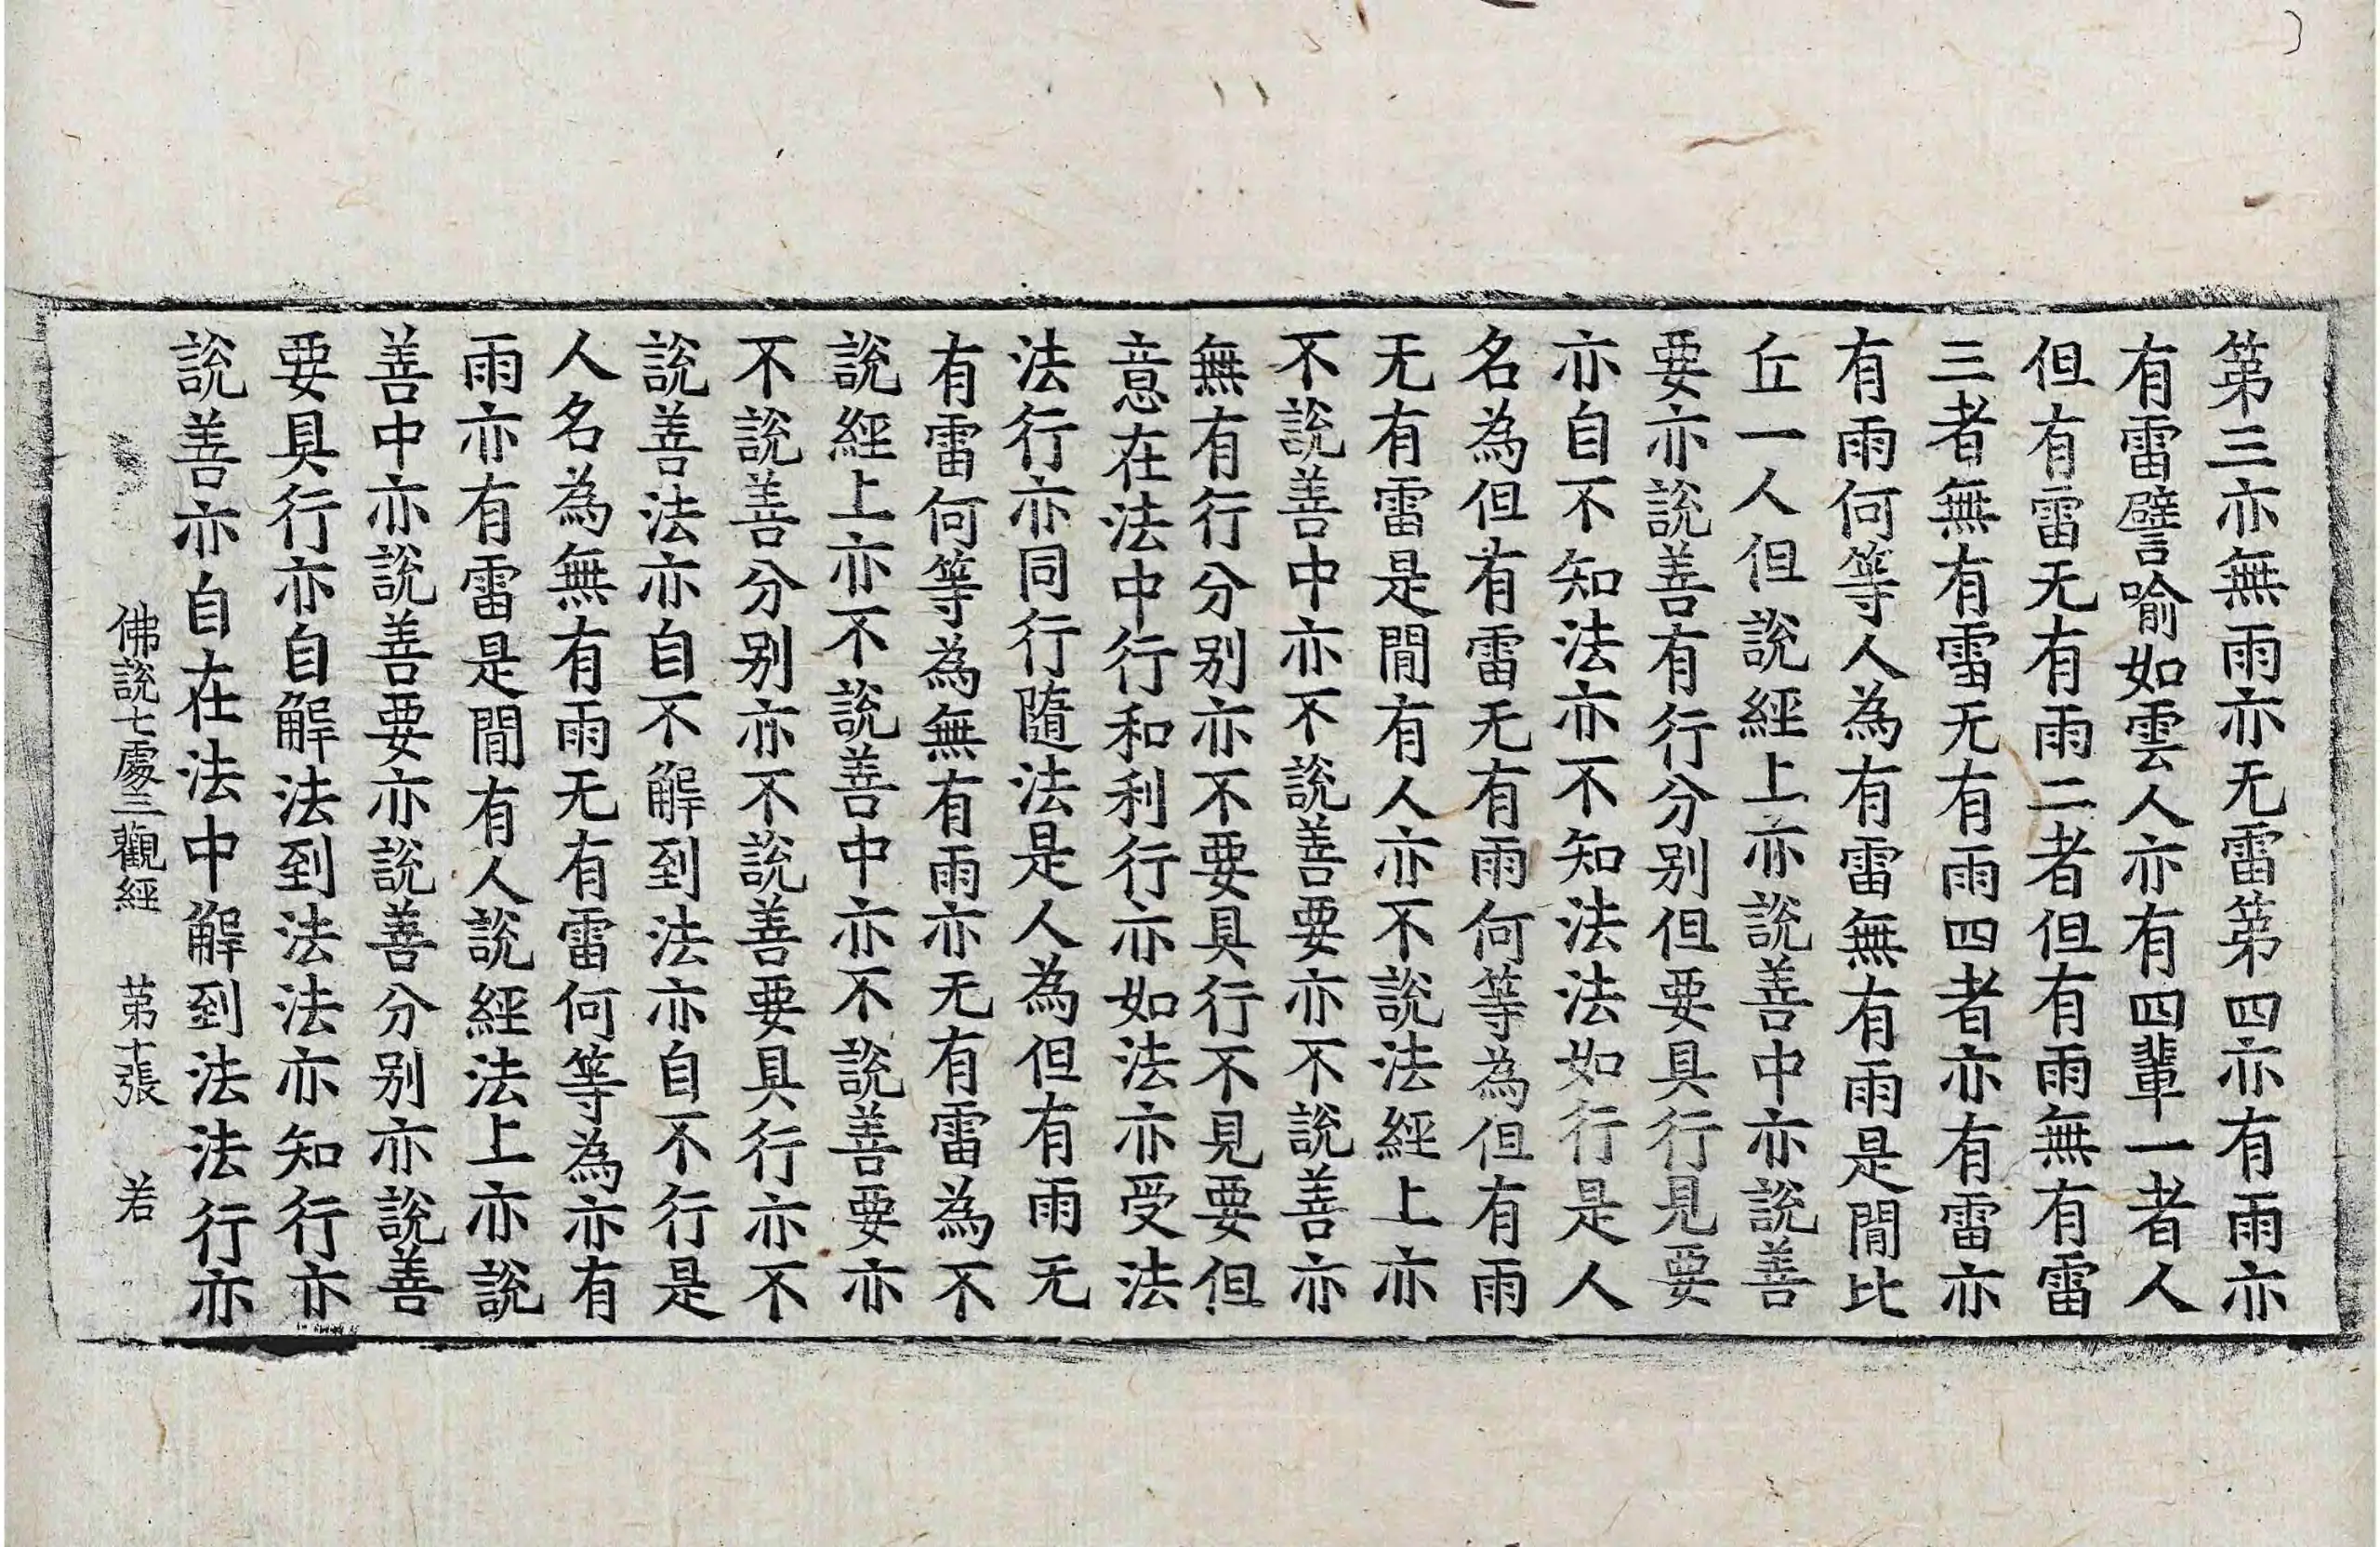 第三亦無雨亦无雷第四亦有雨亦
有雷譬喻如雲人亦有四輩一者人
但有雷无有雨二者但有雨無有雷
三者無有雷无有雨四者亦有雷亦
有雨何等人為有雷無有雨是閒比
丘一人但說經上亦說善中亦說善
要亦說善有行分别但要具行見要
亦自不知法亦不知法法如行是人
名為但有雷无有雨何等為但有雨
无有雷是閒有人亦不說法經上亦
不說善中亦不說善要亦不說善亦
無有行分别亦不要具行不見要但
意在法中行和利行亦如法亦受法
法行亦同行隨法是人為但有雨无
有雷何等為無有雨亦无有雷為不
說經上亦不說善中亦不說善要亦
不說善分别亦不說善要具行亦不
說善法亦自不解到法亦自不行是
人名為無有雨无有雷何等為亦有
雨亦有雷是閒有人說經法上亦說
善中亦說善要亦說善分别亦說善
要具行亦自解法到法法亦知行亦
說善亦自在法中解到法法行亦
佛說七處三觀經 第十張 若